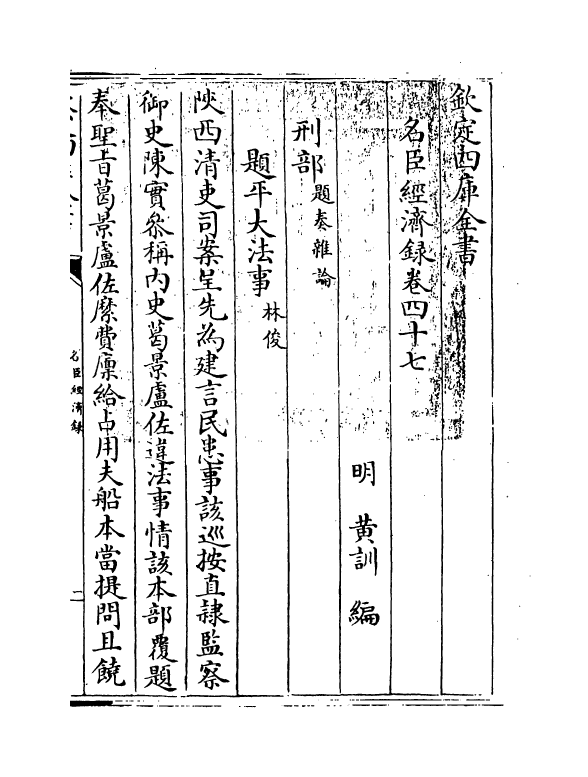 欽定四庫全書
名臣經濟録卷四十七
明 黄訓 編
刑部題奏雜論
題平大法事林俊
陜西清吏司案呈先為建言民患事該巡按直𨽻監察
御史陳實叅稱内史葛景盧佐違法事情該本部覆題
奉聖旨葛景盧佐縻費廪給占用夫船本當提問且饒
名臣經濟録
二